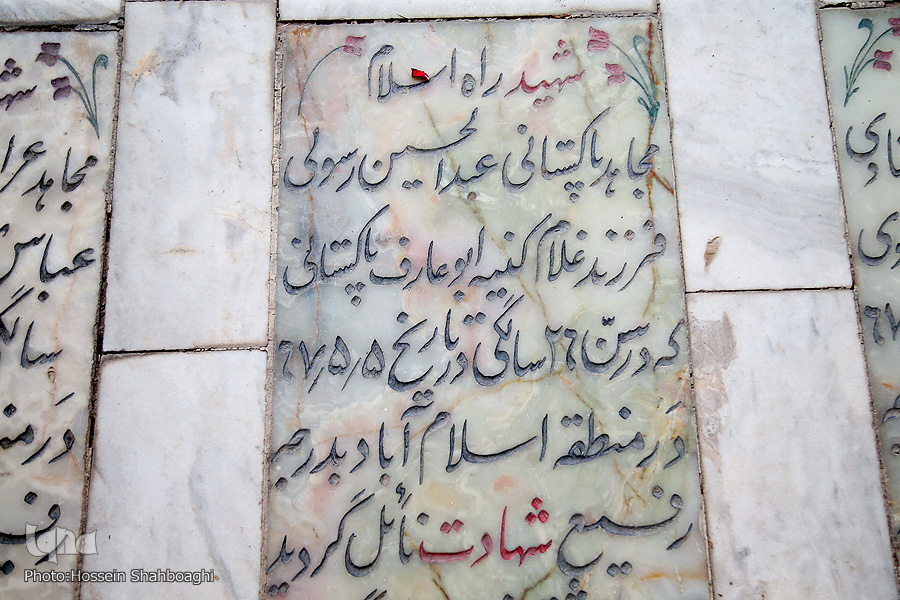 شهید راه اسلام
مجاهد پاکستانی عبدالحسین رسولی
فرزند غلام کنیه ابوعارف پاکستانی
که در سن ۲۶ سالگی در تاریخ ۶۷٫۵٫۵
در منطقه اسلام آباد بدرجه
رفیع شهادت نائل گردید
مجاهد
عباس
سالگی
iqna
Photo:Hossein Shahboaghi